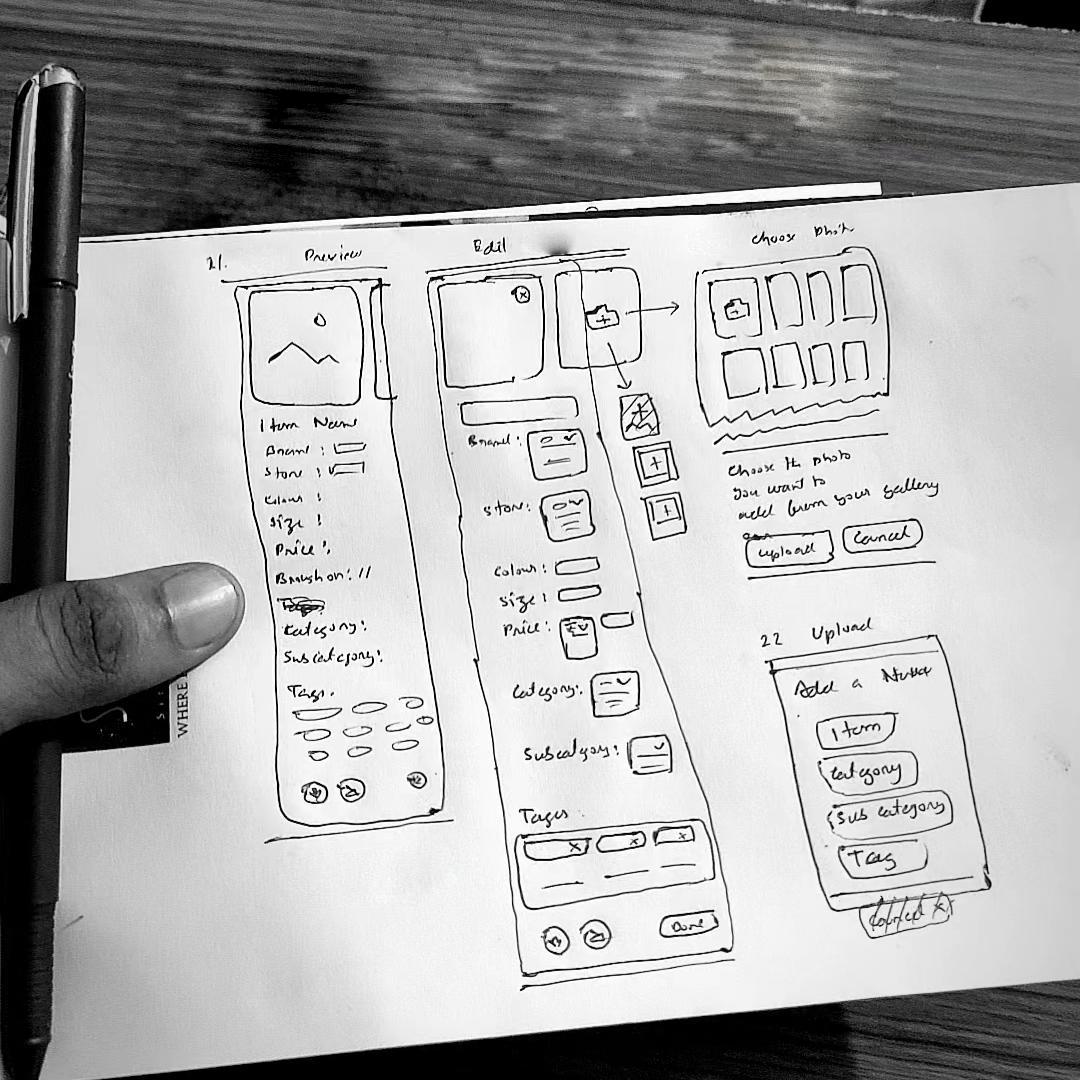 21.
Preview
Item Name
Brand :
Store :
Colour :
Size :
Price :
Category :
Subcategory :
Tags.
Edit
Brand :
Store :
Colour :
Size :
Price :
Category :
Subcategory :
Tages :
Done
Choose Photo
Choose the photo
you want to
add from your gallery
upload
Cancel
22 Upload
Add a
Item
Category
Sub Category
Tag
WHERE